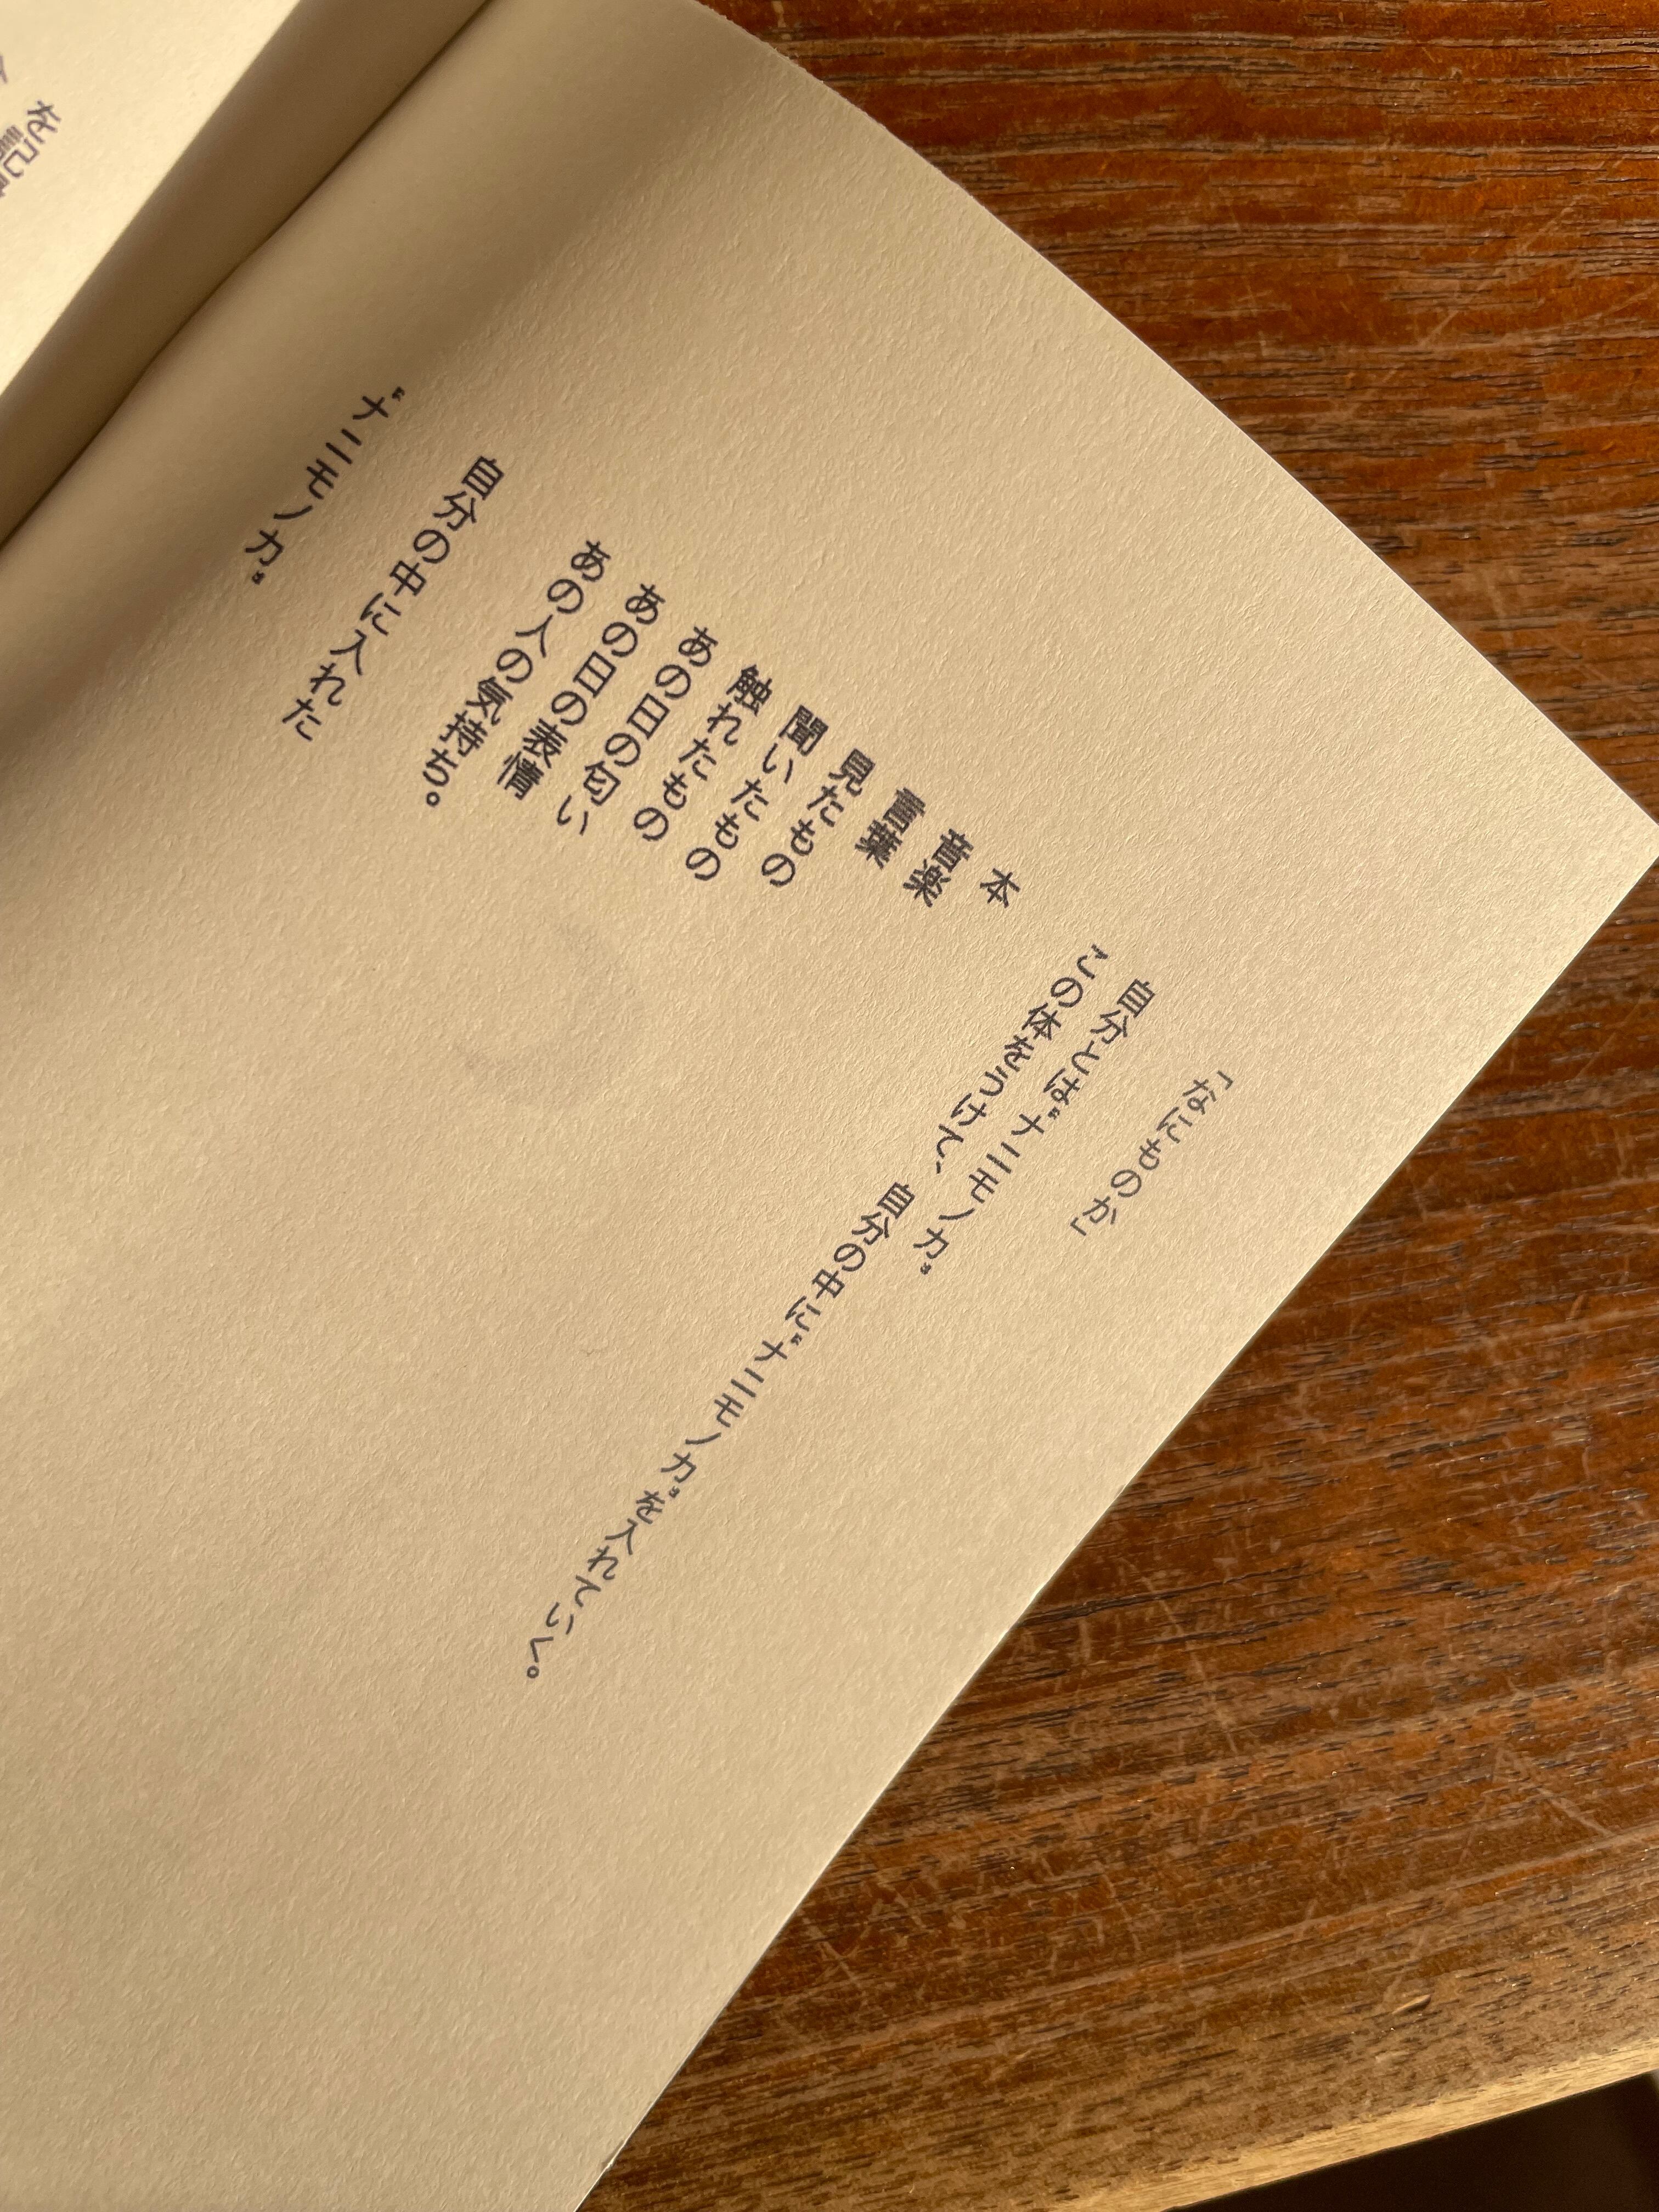 「なにものか」
自分とは”ナニモノカ”
この体をうけて、自分の中に”ナニモノカ”を入れていく。
本
音楽
言葉
見たもの
聞いたもの
触れたもの
あの日の匂い
あの日の表情
あの人の気持ち。
自分の中に入れた
”ナニモノカ”